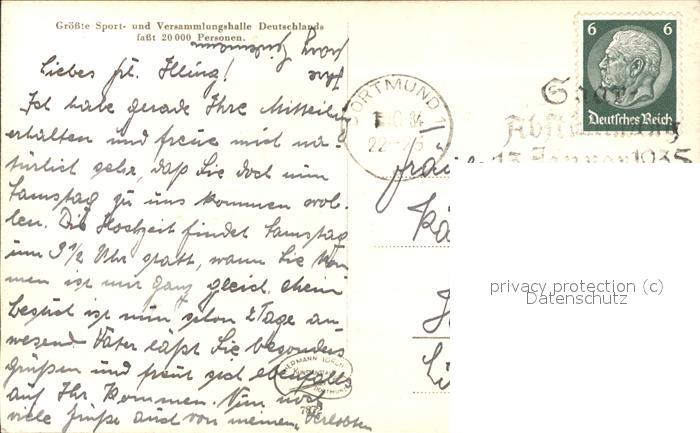 Größte Sport- und Versammlungshalle Deutschlands
faßt 20 000 Personen.
Liebes frl. Illing!
Ich habe gerade Ihre Mitteilung
erhalten und freue mich na-
türlich sehr, daß Sie doch nun
Samstag zu uns kommen wol-
len. Die Hochzeit findet Samstag
um 9 1/2 Uhr statt, wann Sie kom
men ist mir ganz gleich. Mein
Besuch ist nun schon 2 Tage an-
wesend. Vater läßt Sie besonders
grüßen und freut sich ebenfalls
auf Ihr Kommen. Nun noch
viele Grüße auch von meinem Verlobten
Ihre
DORTMUND 1
22-23
Saar-
Abstimmung
13. Januar 1935
6 6
Deutsches Reich
HERMANN
DORTMUND
privacy protection (c)
Datenschutz